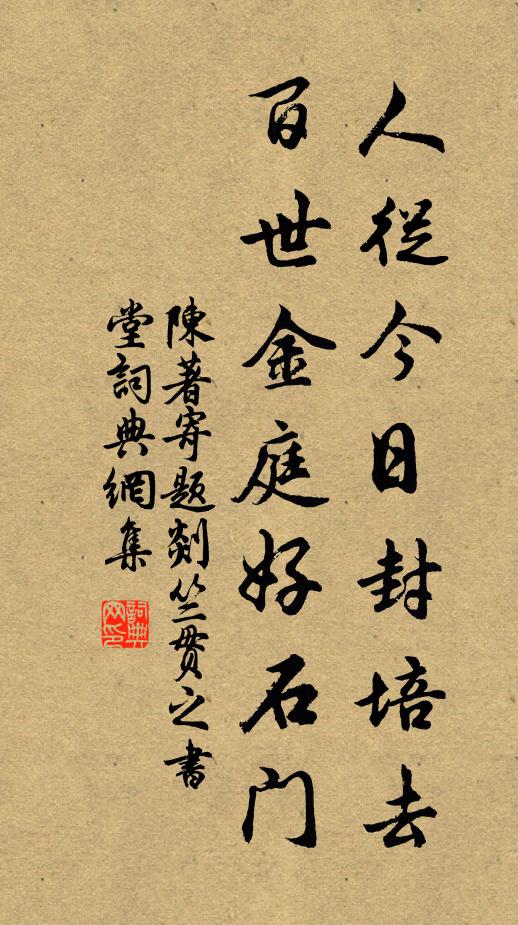 人從今日封培去
百世金庭好石門
陳著寄題剡竺貫之書
堂詞典網集
詞典網印